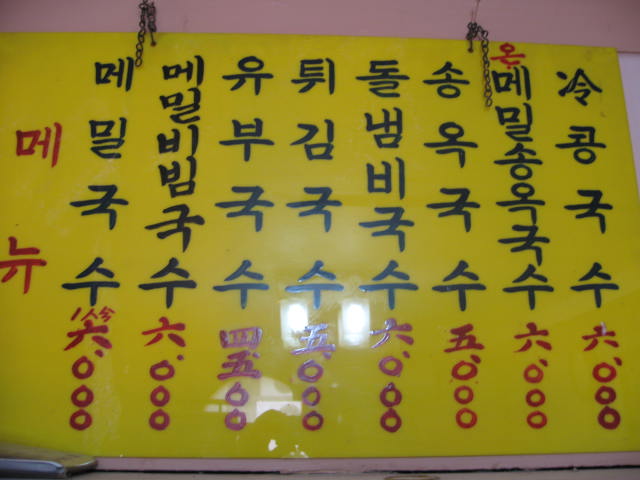 메뉴
메밀국수 1人分 六,000
메밀비빔국수 六,000
유부국수 四,五00
튀김국수 五,000
돌냄비국수 六,000
송옥국수 五,000
온메밀송옥국수 六,000
冷콩국수 六,000